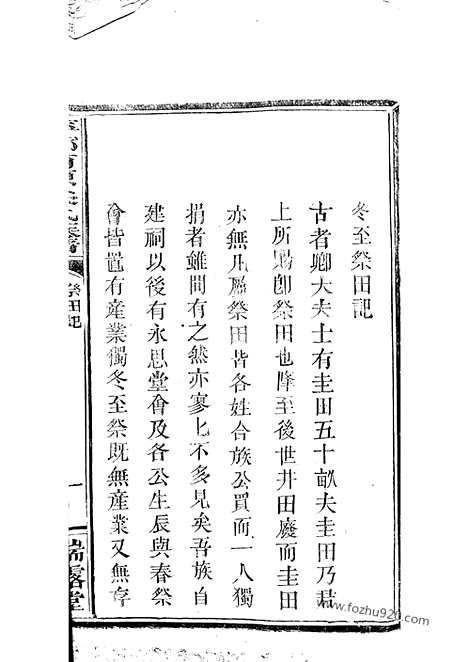 冬至祭田記
古者卿大夫士有圭田五十畝夫圭田乃君
上所賜卽祭田也降至後世井田廢而圭田
亦無凡屬祭田皆各姓合族公買而一人獨
捐者雖間有之然亦寥匕不多見矣吾族自
建祠以後有永思堂會及各公生辰與春祭
會皆置有産業獨冬至祭既無産業又無存
祭田記
一
瑞露堂
www.fozhu920.com